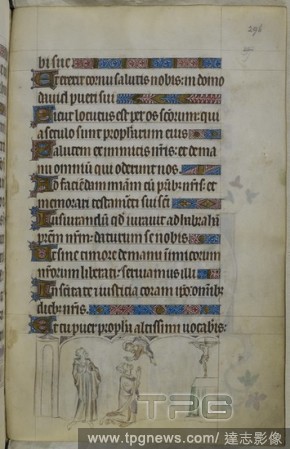 296
bi suc
Et erexit cornu salutis nobis: in domo
david pueri sui
Sicut locutus est per os scorum: qui
a seculo sunt prophetarum eius
Salutem ex inimicis nris: et de ma
nu omniu qui oderunt nos
Ad faciendam miam cu prib; nris: et
memorari testamenti sui sci
Iusiurandu qd iuravit ad abraha
prem nrm: daturum se nobis
Ut sine timore de manu inimicorum
nrorum liberati: serviamus illi
In scitate et iusticia coram ipo: omib;
dieb; nris.
Et tu puer propha altissimi vocabis:
TPG
www.tpgnews.com/達志影像